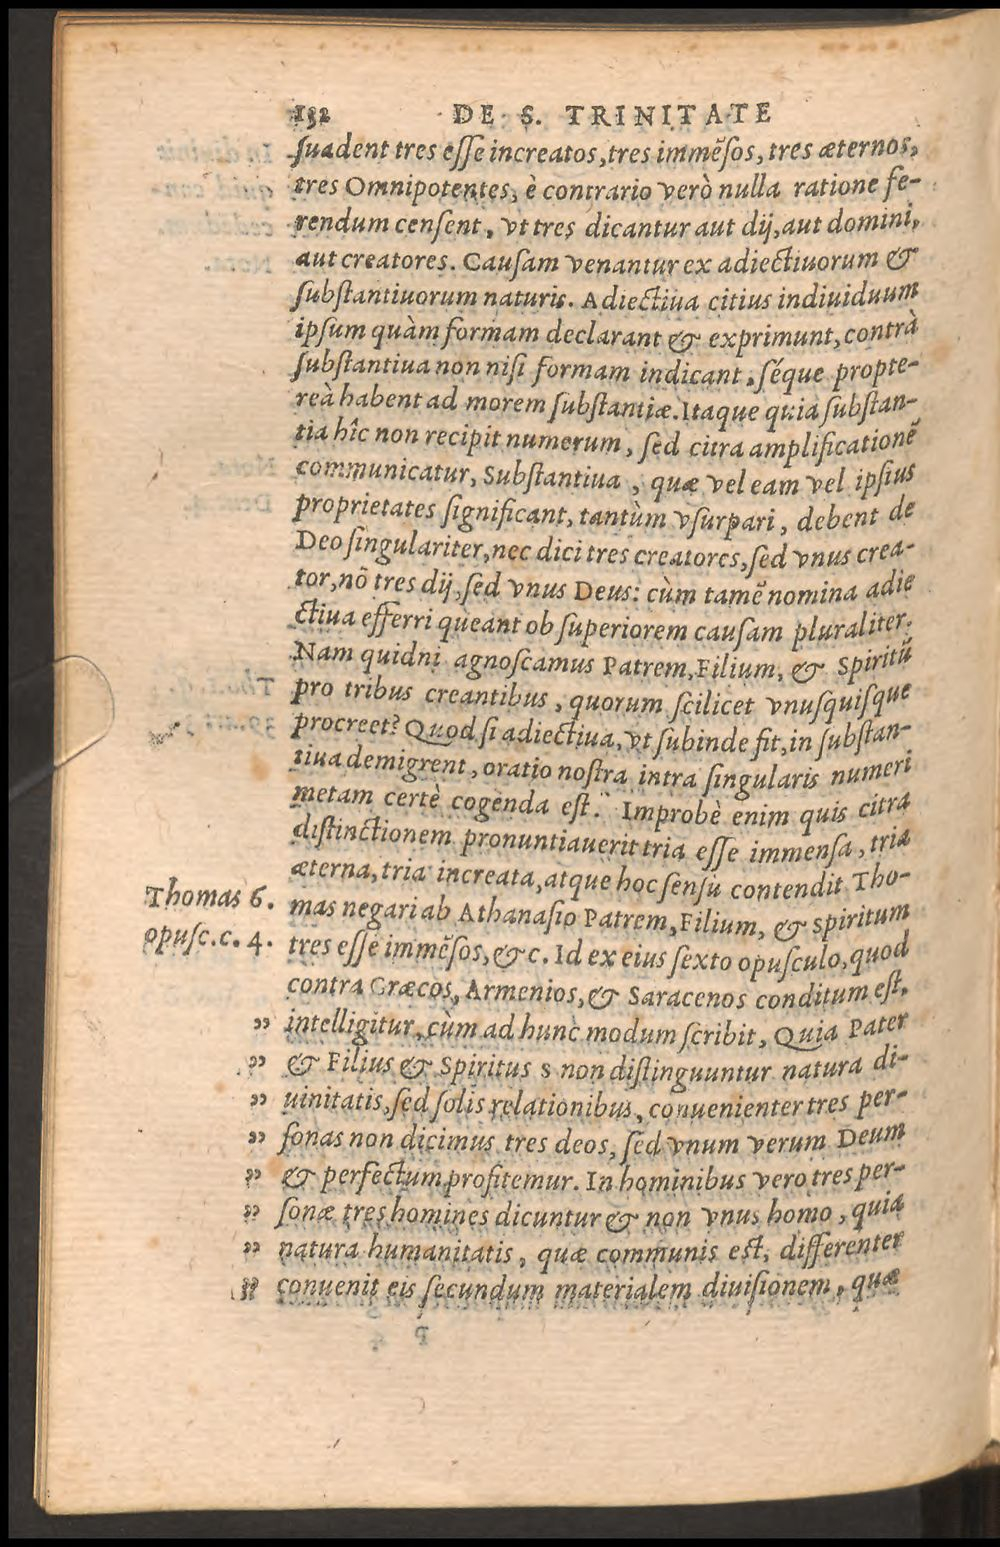 132 DE S. TRINITATE
ſuadent tres eſſe increatos, tres immẽſos, tres æternos,
tres Omnipotentes, è contrario verò nulla ratione fe-
rendum cenſent, vt tres dicantur aut dij, aut domini,
aut creatores. Cauſam venantur ex adiectiuorum &
ſubſtantiuorum naturis. Adiectiua citius indiuiduum
ipſum quàm formam declarant & exprimunt, contrà
ſubſtantiua non niſi formam indicant, ſéque propte-
reà habent ad morem ſubſtantiæ. Itaque quia ſubſtan-
tia hîc non recipit numerum, ſed citra amplificationẽ
communicatur, Subſtantiua, quæ vel eam vel ipſius
proprietates ſignificant, tantùm vſurpari, debent de
Deo ſingulariter, nec dici tres creatores, ſed vnus crea-
tor, nõ tres dij, ſed vnus Deus: cùm tamẽ nomina adie
ctiua efferri queant ob ſuperiorem cauſam pluraliter.
Nam quidni agnoſcamus Patrem, Filium, & Spiritũ
pro tribus creantibus, quorum ſcilicet vnuſquiſque
procreet? Quod ſi adiectiua, vt ſubinde fit, in ſubſtan-
tiua demigrent, oratio noſtra intra ſingularis numeri
metam certè cogenda eſt. Improbè enim quis citra
diſtinctionem pronuntiauerit tria eſſe immenſa, tria
æterna, tria increata, atque hoc ſenſu contendit Tho-
Thomas 6.
opuſc. c. 4.
mas negari ab Athanaſio Patrem, Filium, & ſpiritum
tres eſſe immẽſos, &c. Id ex eius ſexto opuſculo, quod
contra Græcos, Armenios, & Saracenos conditum eſt,
” intelligitur, cùm ad hunc modum ſcribit, Quia Pater
” & Filius & Spiritus s non diſtinguuntur natura di-
” uinitatis, ſed ſolis relationibus, conuenienter tres per-
” ſonas non dicimus tres deos, ſed vnum verum Deum
” & perfectum profitemur. In hominibus vero tres per-
” ſonæ tres homines dicuntur & non vnus homo, quia
” natura humanitatis, quæ communis eſt, differenter
” conuenit eis ſecundum materialem diuiſionem, quæ